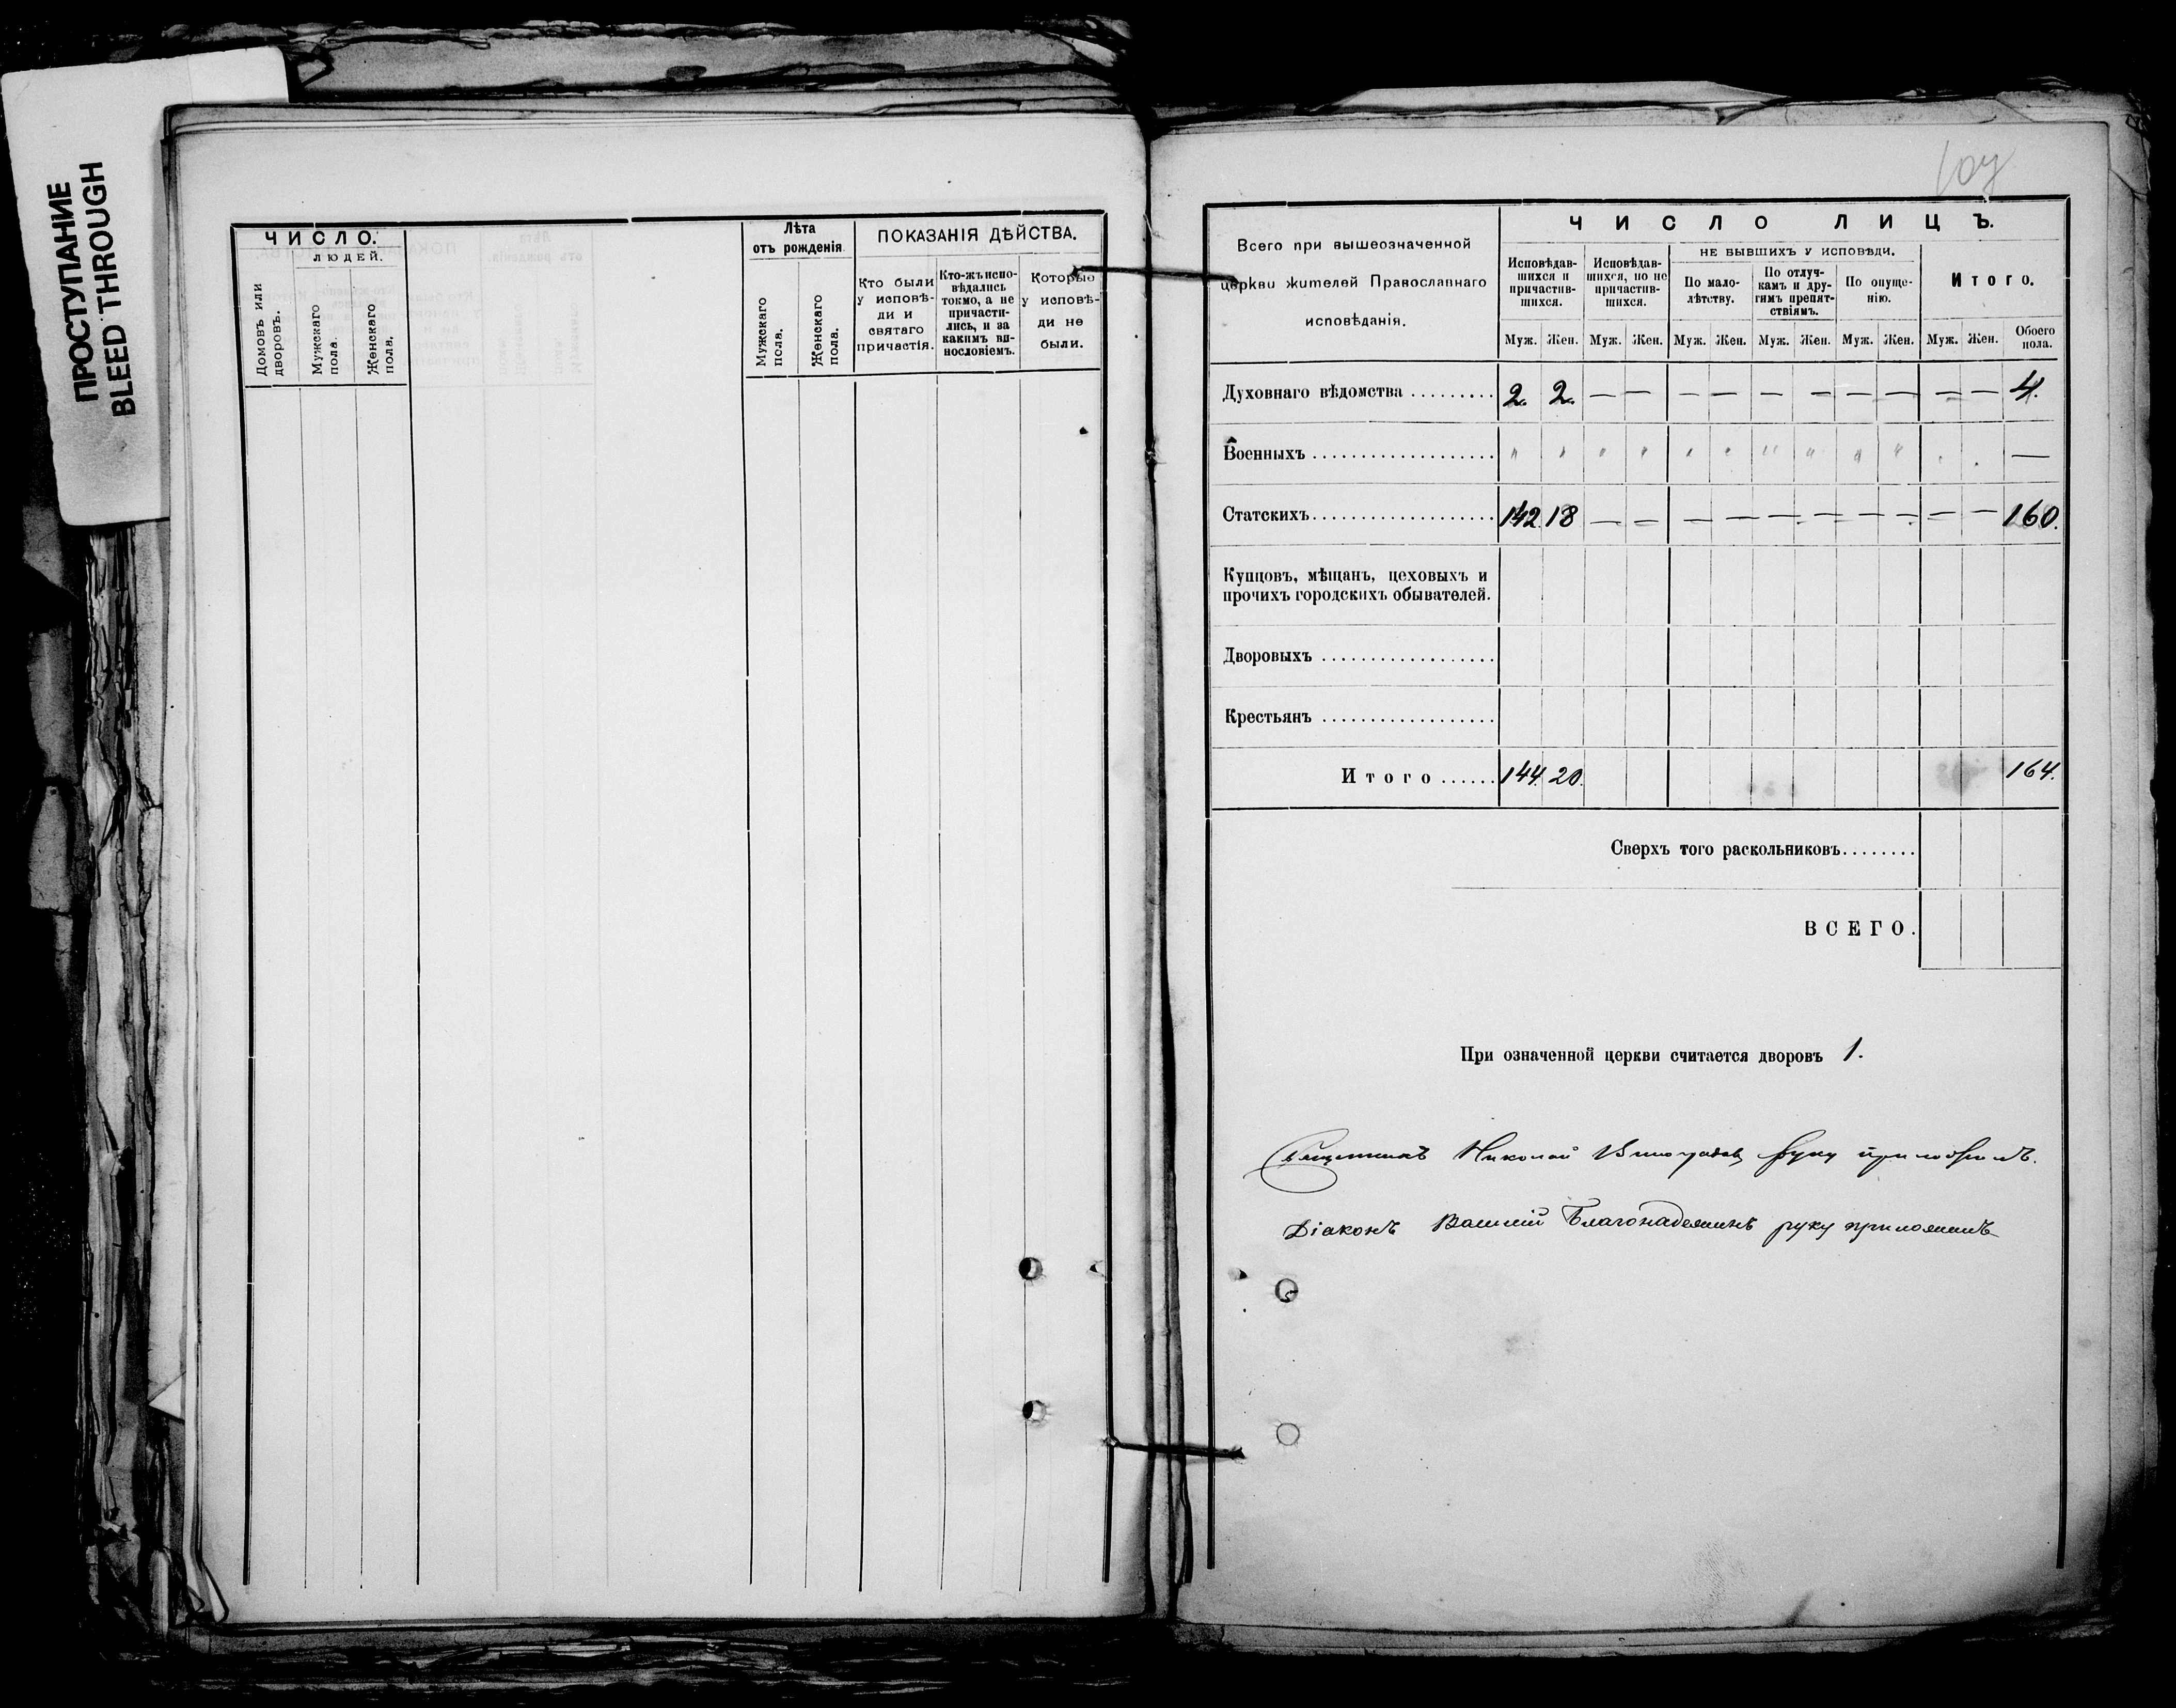 ПРОСТУПАНИЕ
BLEED THROUGH
ЧИСЛО:
ЛЮДЕЙ.
Домовъ или дворовъ.
Мужскаго пола.
Женскаго пола.
Лѣта
отъ рожденія.
Мужскаго пола.
Женскаго пола.
ПОКАЗАНІЯ ДѢЙСТВА.
Кто были
у исповѣ-
ди и
святаго
причастія.
Кто-жъ испо-
вѣдались
токмо, а не
причасти-
лись, и за
какимъ ви-
нословіемъ.
Которые
у исповѣ-
ди не
были.
Всего при вышеозначенной
церкви жителей Православнаго
исповѣданія.
ЧИСЛО ЛИЦЪ.
Исповѣдав-
шихся и
причастив-
шихся.
Исповѣдав-
шихся, но не
причастив-
шихся.
НЕ БЫВШИХЪ У ИСПОВѢДИ.
По мало-
лѣтству.
По отлуч-
камъ и дру-
гимъ препят-
ствіямъ.
По опуще-
нію.
Итого.
Муж. Жен. Муж. Жен. Муж. Жен. Муж. Жен. Муж. Жен. Муж. Жен. Обоего пола.
Духовнаго вѣдомства ......... 2. 2. — — — — — — — — — — 4.
Военныхъ ................... " " " " " " " " " " " " —
Статскихъ................... 142. 18 — — — — — — — — — — 160.
Купцовъ, мѣщанъ, цеховыхъ и
прочихъ городскихъ обывателей.
Дворовыхъ ..................
Крестьянъ ..................
Итого...... 144. 20. 164.
Сверхъ того раскольниковъ........
ВСЕГО.
При означенной церкви считается дворовъ 1.
Священникъ Николай Виноградовъ руку приложилъ.
Діаконъ Василій Благонадежинъ руку приложилъ